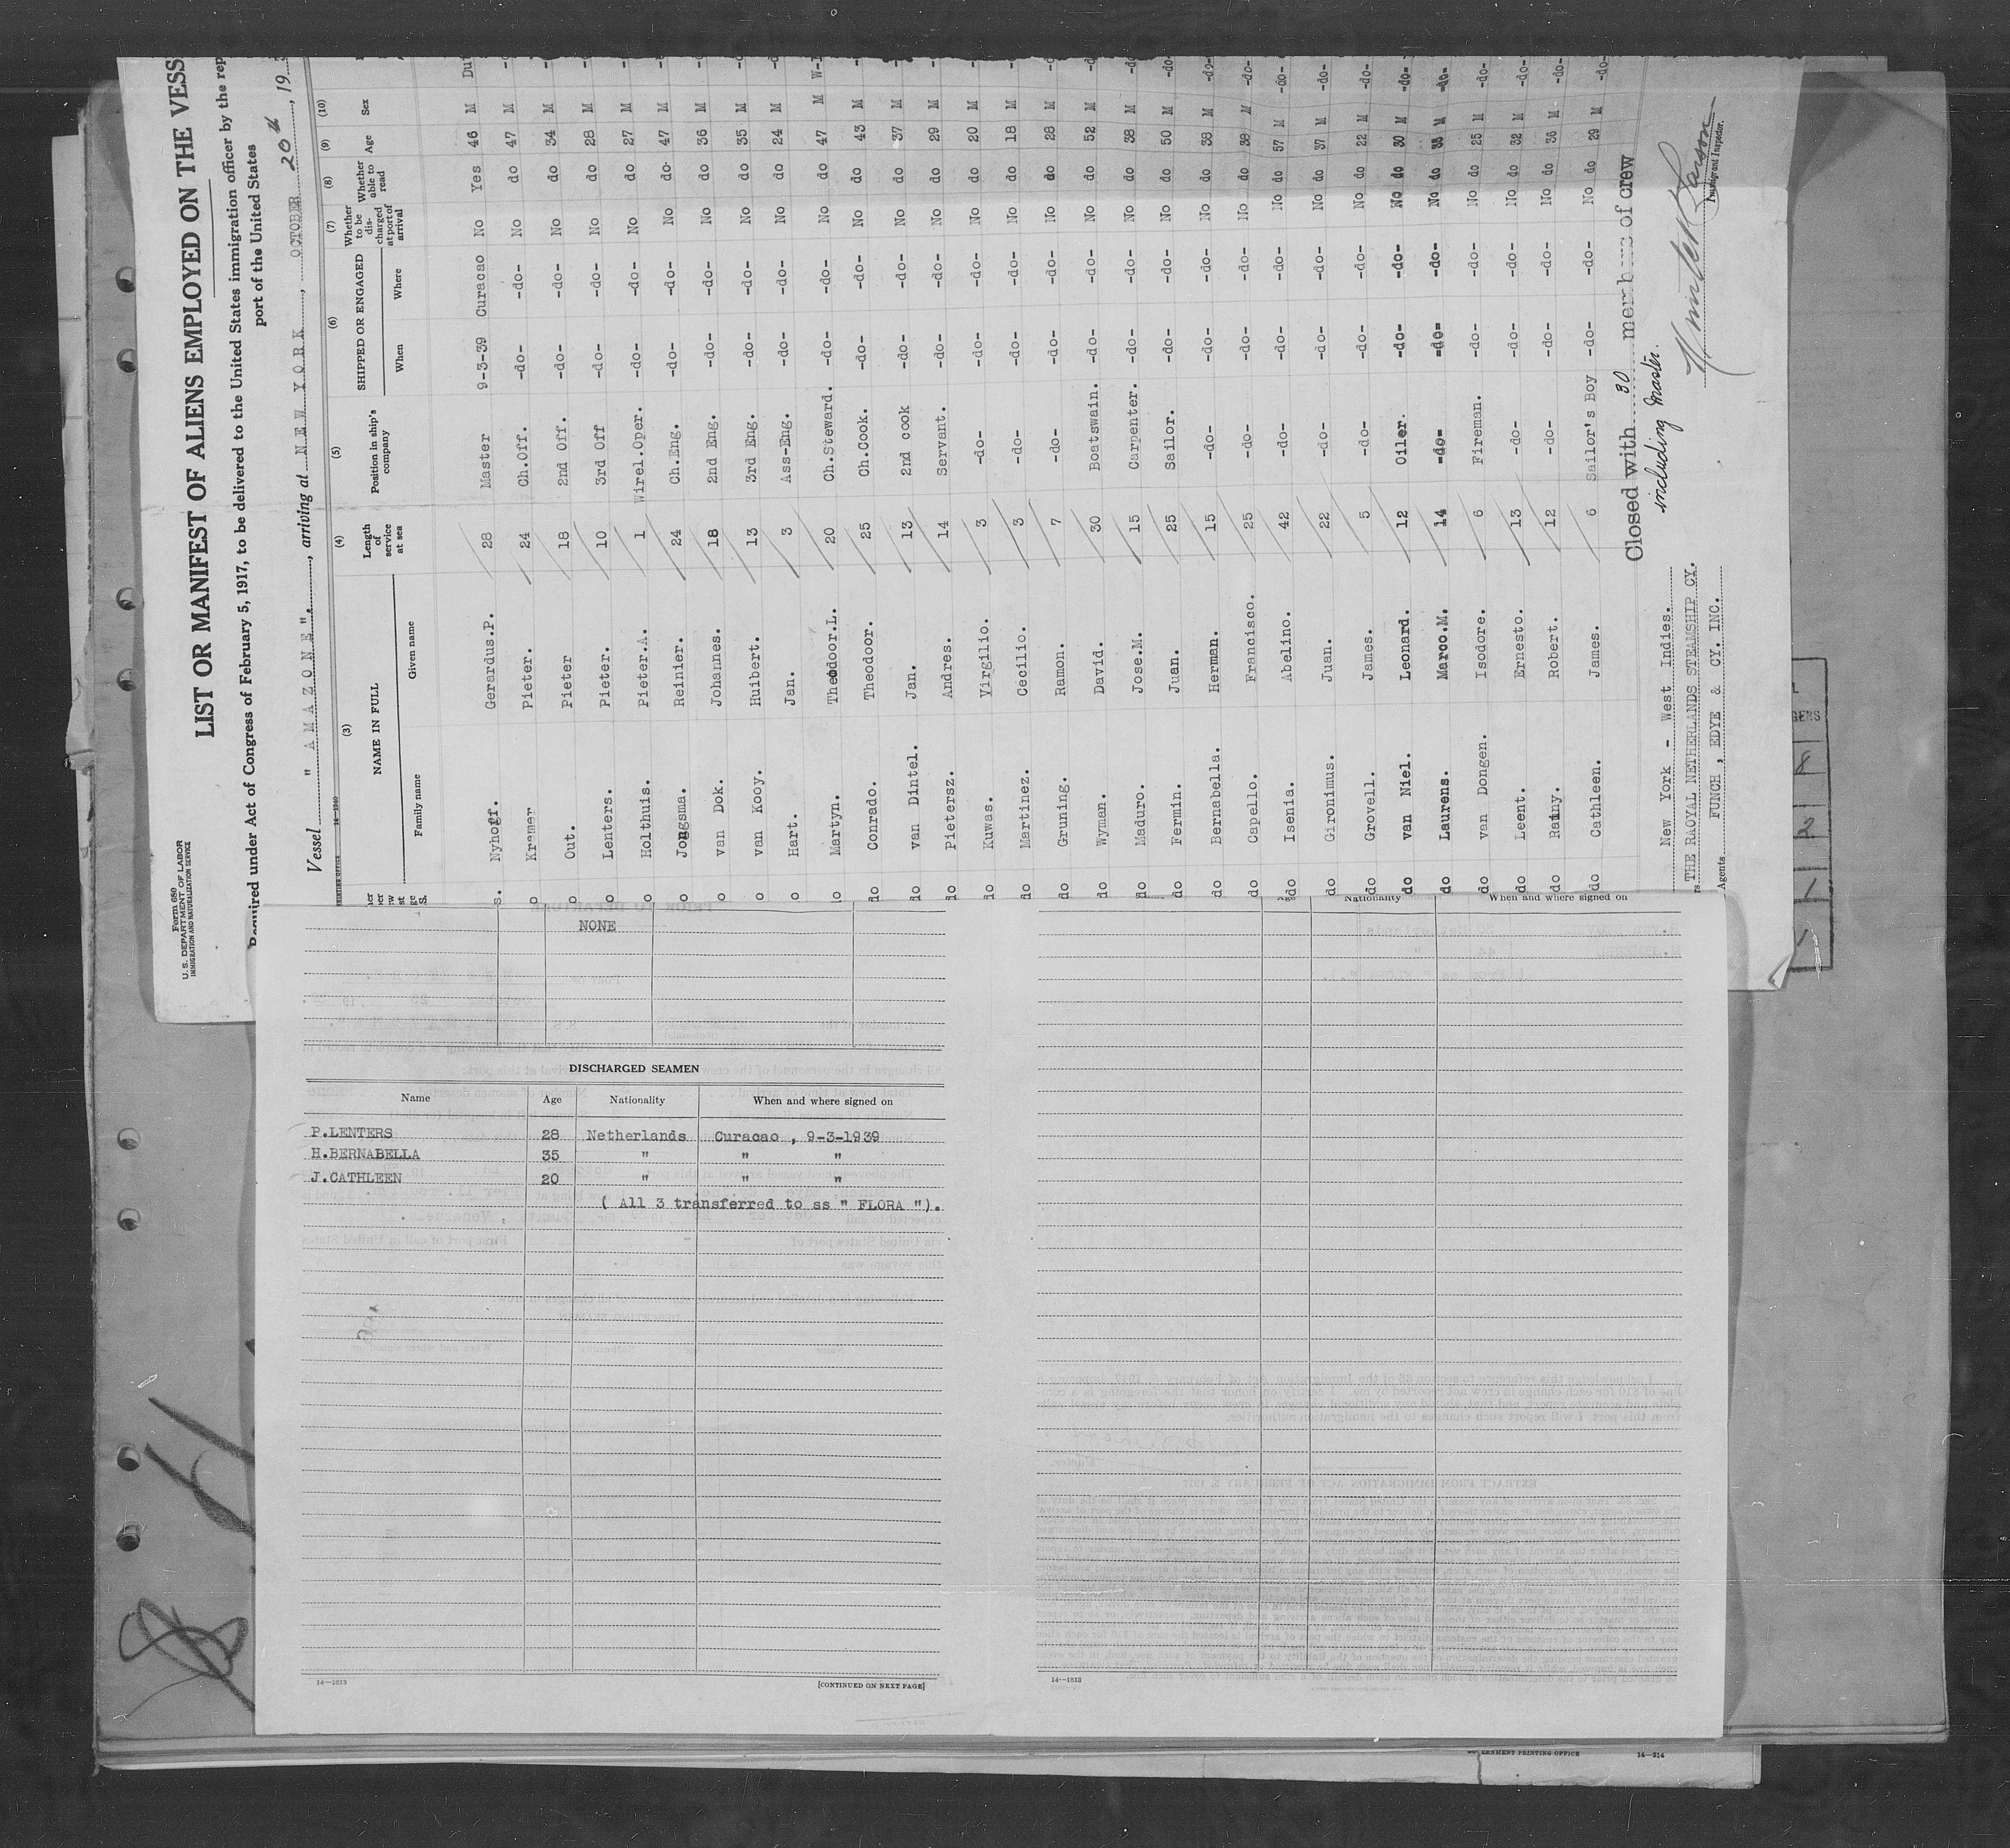 Form 680
U. S. DEPARTMENT OF LABOR
IMMIGRATION AND NATURALIZATION SERVICE
LIST OR MANIFEST OF ALIENS EMPLOYED ON THE VESS
Required under Act of Congress of February 5, 1917, to be delivered to the United States immigration officer by the rep
port of the United States
Vessel " A M A Z O N E ". , arriving at N E W Y O R K , OCTOBER 20th , 19
(3) (4) (5) (6) (7) (8) (9) (10)
NAME IN FULL Length of service at sea Position in ship's company SHIPPED OR ENGAGED Whether to be discharged at port of arrival Whether able to read Age Sex
Family name Given name When Where
s. Nyhoff. Gerardus.P. 28 Master 9-3-39 Curacao No Yes 46 M Du
o Kramer Pieter. 24 Ch.Off. -do- -do- No do 47 M
o Out. Pieter 18 2nd Off. -do- -do- No do 34 M
o Lenters. Pieter. 10 3rd Off -do- -do- No do 28 M
o Holthuis. Pieter.A. 1 Wirel.Oper. -do- -do- No do 27 M
o Jongsma. Reinier. 24 Ch.Eng. -do- -do- No do 47 M
o van Dok. Johannes. 18 2nd Eng. -do- -do- No do 36 M
o van Kooy. Huibert. 13 3rd Eng. -do- -do- No do 35 M
o Hart. Jan. 3 Ass-Eng. -do- -do- No do 24 M
do Martyn. Theodoor.L. 20 Ch.Steward. -do- -do- No do 47 M W-
do Conrado. Theodoor. 25 Ch.Cook. -do- -do- No do 43 M
do van Dintel. Jan. 13 2nd cook -do- -do- No do 37 M
do Pietersz. Andres. 14 Servant. -do- -do- No do 29 M
do Kuwas. Virgilio. 3 -do- -do- -do- No do 20 M
do Martinez. Cecilio. 3 -do- -do- -do- No do 18 M
do Gruning. Ramon. 7 -do- -do- -do- No do 28 M
do Wyman. David. 30 Boatswain. -do- -do- No do 52 M
do Maduro. Jose.M. 15 Carpenter. -do- -do- No do 38 M -do
do Fermin. Juan. 25 Sailor. -do- -do- No do 50 M -do-
do Bernabella. Herman. 15 -do- -do- -do- No do 38 M -do-
do Capello. Francisco. 25 -do- -do- -do- No do 39 M -do-
do Isenia. Abelino. 42 -do- -do- -do- No do 57 M -do-
do Gironimus. Juan. 22 -do- -do- -do- No do 37 M -do-
do Grovell. James. 5 -do- -do- -do- No do 22 M -do-
do van Niel. Leonard. 12 Oiler. -do- -do- No do 30 M -do-
do Laurens. Marco.M. 14 -do- -do- -do- No do M -do-
do van Dongen. Isodore. 6 Fireman. -do- -do- No do 25 M -do-
do Leent. Ernesto. 13 -do- -do- -do- No do 32 M -do-
do Rainy. Robert. 12 -do- -do- -do- No do 36 M -do-
do Cathleen. James. 6 Sailor's Boy -do- -do- No do 29 M -do-
Closed with 30 members of crew
including Master.
New York - West Indies.
THE RAOYAL NETHERLANDS STEAMSHIP CY.
Agents FUNCH , EDYE & CY. INC.
Immigrant Inspector.
NONE
DISCHARGED SEAMEN
Name Age Nationality When and where signed on
P.LENTERS 28 Netherlands Curacao , 9-3-1939
H.BERNABELLA 35 " " "
J.CATHLEEN 20 " " "
( All 3 transferred to ss " FLORA ").
14—1613 [CONTINUED ON NEXT PAGE]
Nationality When and where signed on
14—1613
ERNMENT PRINTING OFFICE 14—314
8
2
1